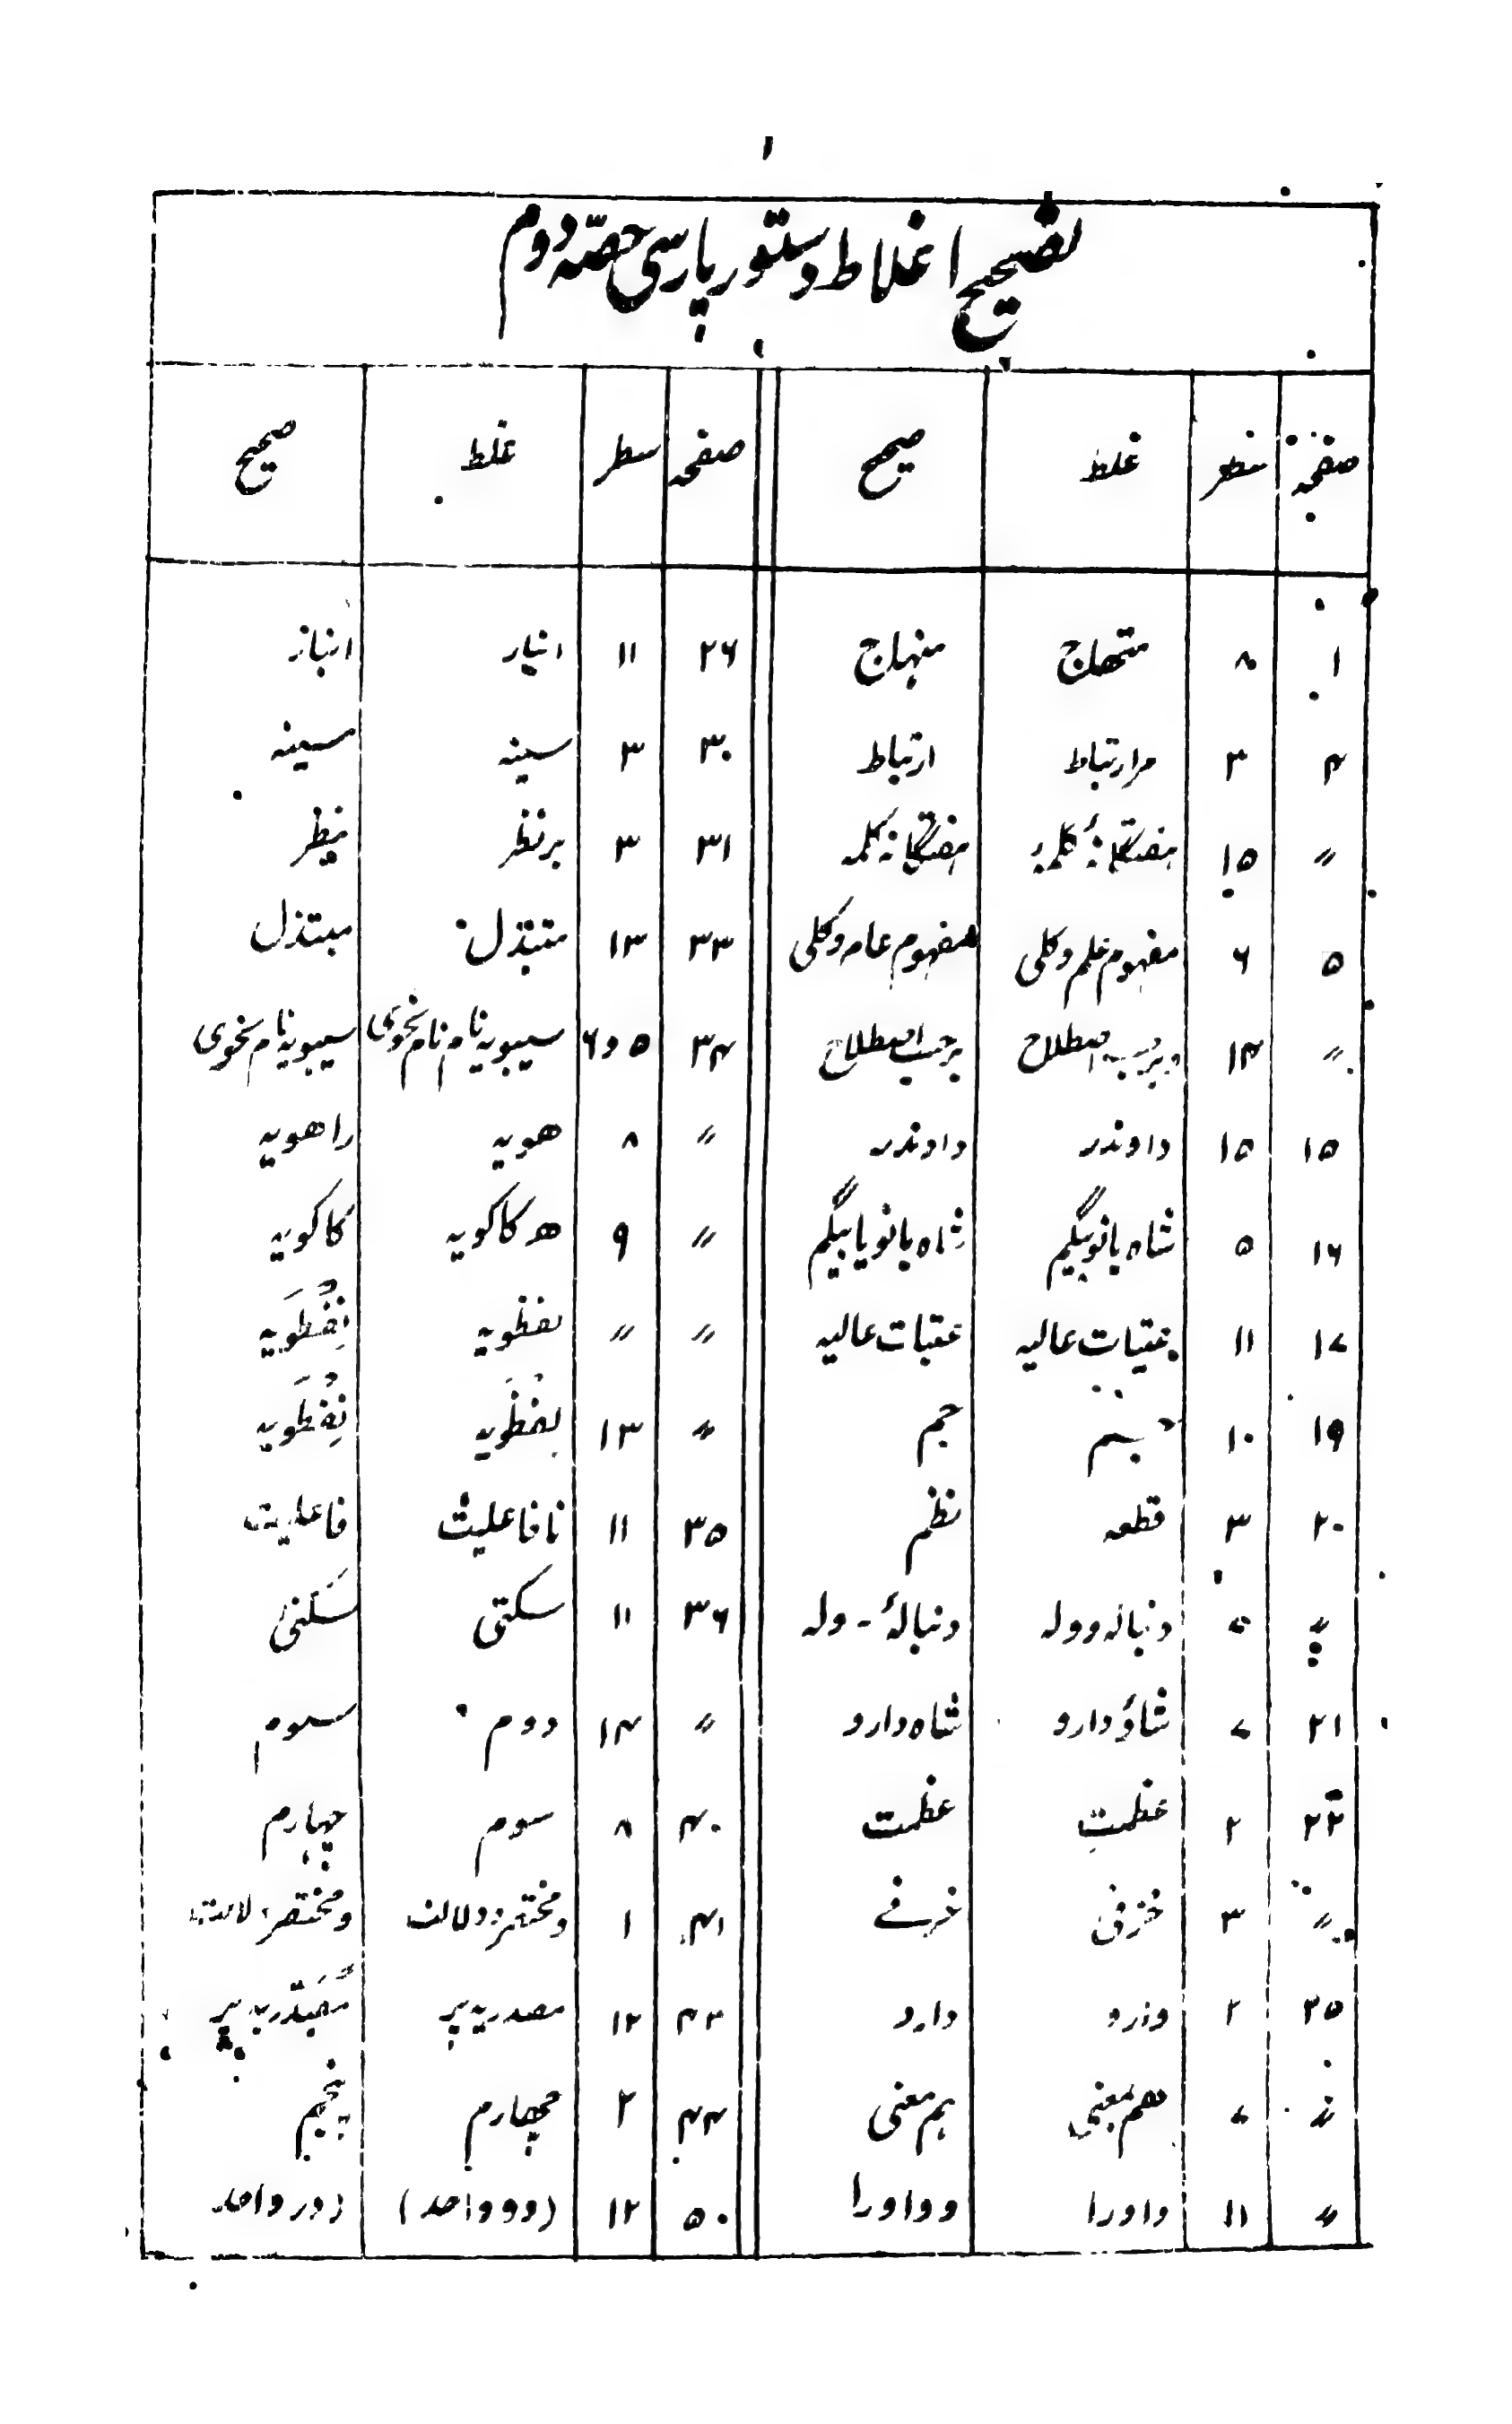 ۱
تصحیح اغلاط دستور پارسی حصّہ دوم
صفحہ سطر غلط صحیح صفحہ سطر غلط صحیح
۱ ۸ متھاج منہاج ۲۶ ۱۱ انیار انباز
۴ ۳ مرارتباط ارتباط ۳۰ ۳ سینہ سینہ
〃 ۱۵ ہفتگانۂ کلمہ ہفتگانہ کلمہ ۳۱ ۳ برنظر بنظر
۵ ۶ مفہوم علم وکلی مفہوم عام وکلی ۳۳ ۱۳ متبذل مبتذل
〃 ۱۴ اصطلاح برحسب اصطلاح ۳۴ ۵ و ۶ سیبویہ نام نام نحوی سیبویہ نام نحوی
۱۵ ۱۵ داوندر دادندر 〃 ۸ ھویہ راھویہ
۱۶ ۵ شاہ بانو بیگم شاہ بانو یا بیگم 〃 ۹ ھ کاکویہ کاکویہ
۱۷ ۱۱ عقیات عالیہ عقبات عالیہ 〃 〃 نفظویہ نِفْطَویہ
۱۹ ۱۰ جم 〃 ۱۳ نِفْطَویہ
۲۰ ۳ قطعہ نظم ۳۵ ۱۱ نافاعلیت فاعلیت
〃 ۵ دنبالہ وولہ دنبالۂ - ولہ ۳۶ ۱۱ سکتی سَکَنیٔ
۲۱ ۷ شاؤدارو شاہ دارو 〃 ۱۴ دوم سوم
۲۲ ۲ عظمتِ عظمت ۴۰ ۸ سوم چہارم
〃 ۳ خزفی غرفے ۴۱ ۱ ومختصر دلالت
۲۵ ۲ وزرو دارو ۴۳ ۱۲ مصدریہ پر
〃 ۷ ھم معنی ہم معنی ۴۴ ۲ چھارم پنجم
〃 ۱۱ واورا وواورا ۵۰ ۱۲ (دو واحد) (در واحد